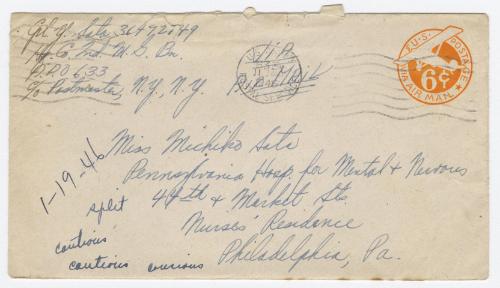 Y. Sata 36472549
Hq. Co. M. G. Bn.
A.P.O 633
c/o Postmaster, N.Y. N.Y.
Via
Air Mail
U.S. POSTAGE
6¢
VIA AIR MAIL
Miss Michiko Sata
Pennsylvania Hosp. for Mental & Nervous
44th & Market Sts.
Nurses' Residence
Philadelphia, Pa.
1-19-46
split
cautious
cautious